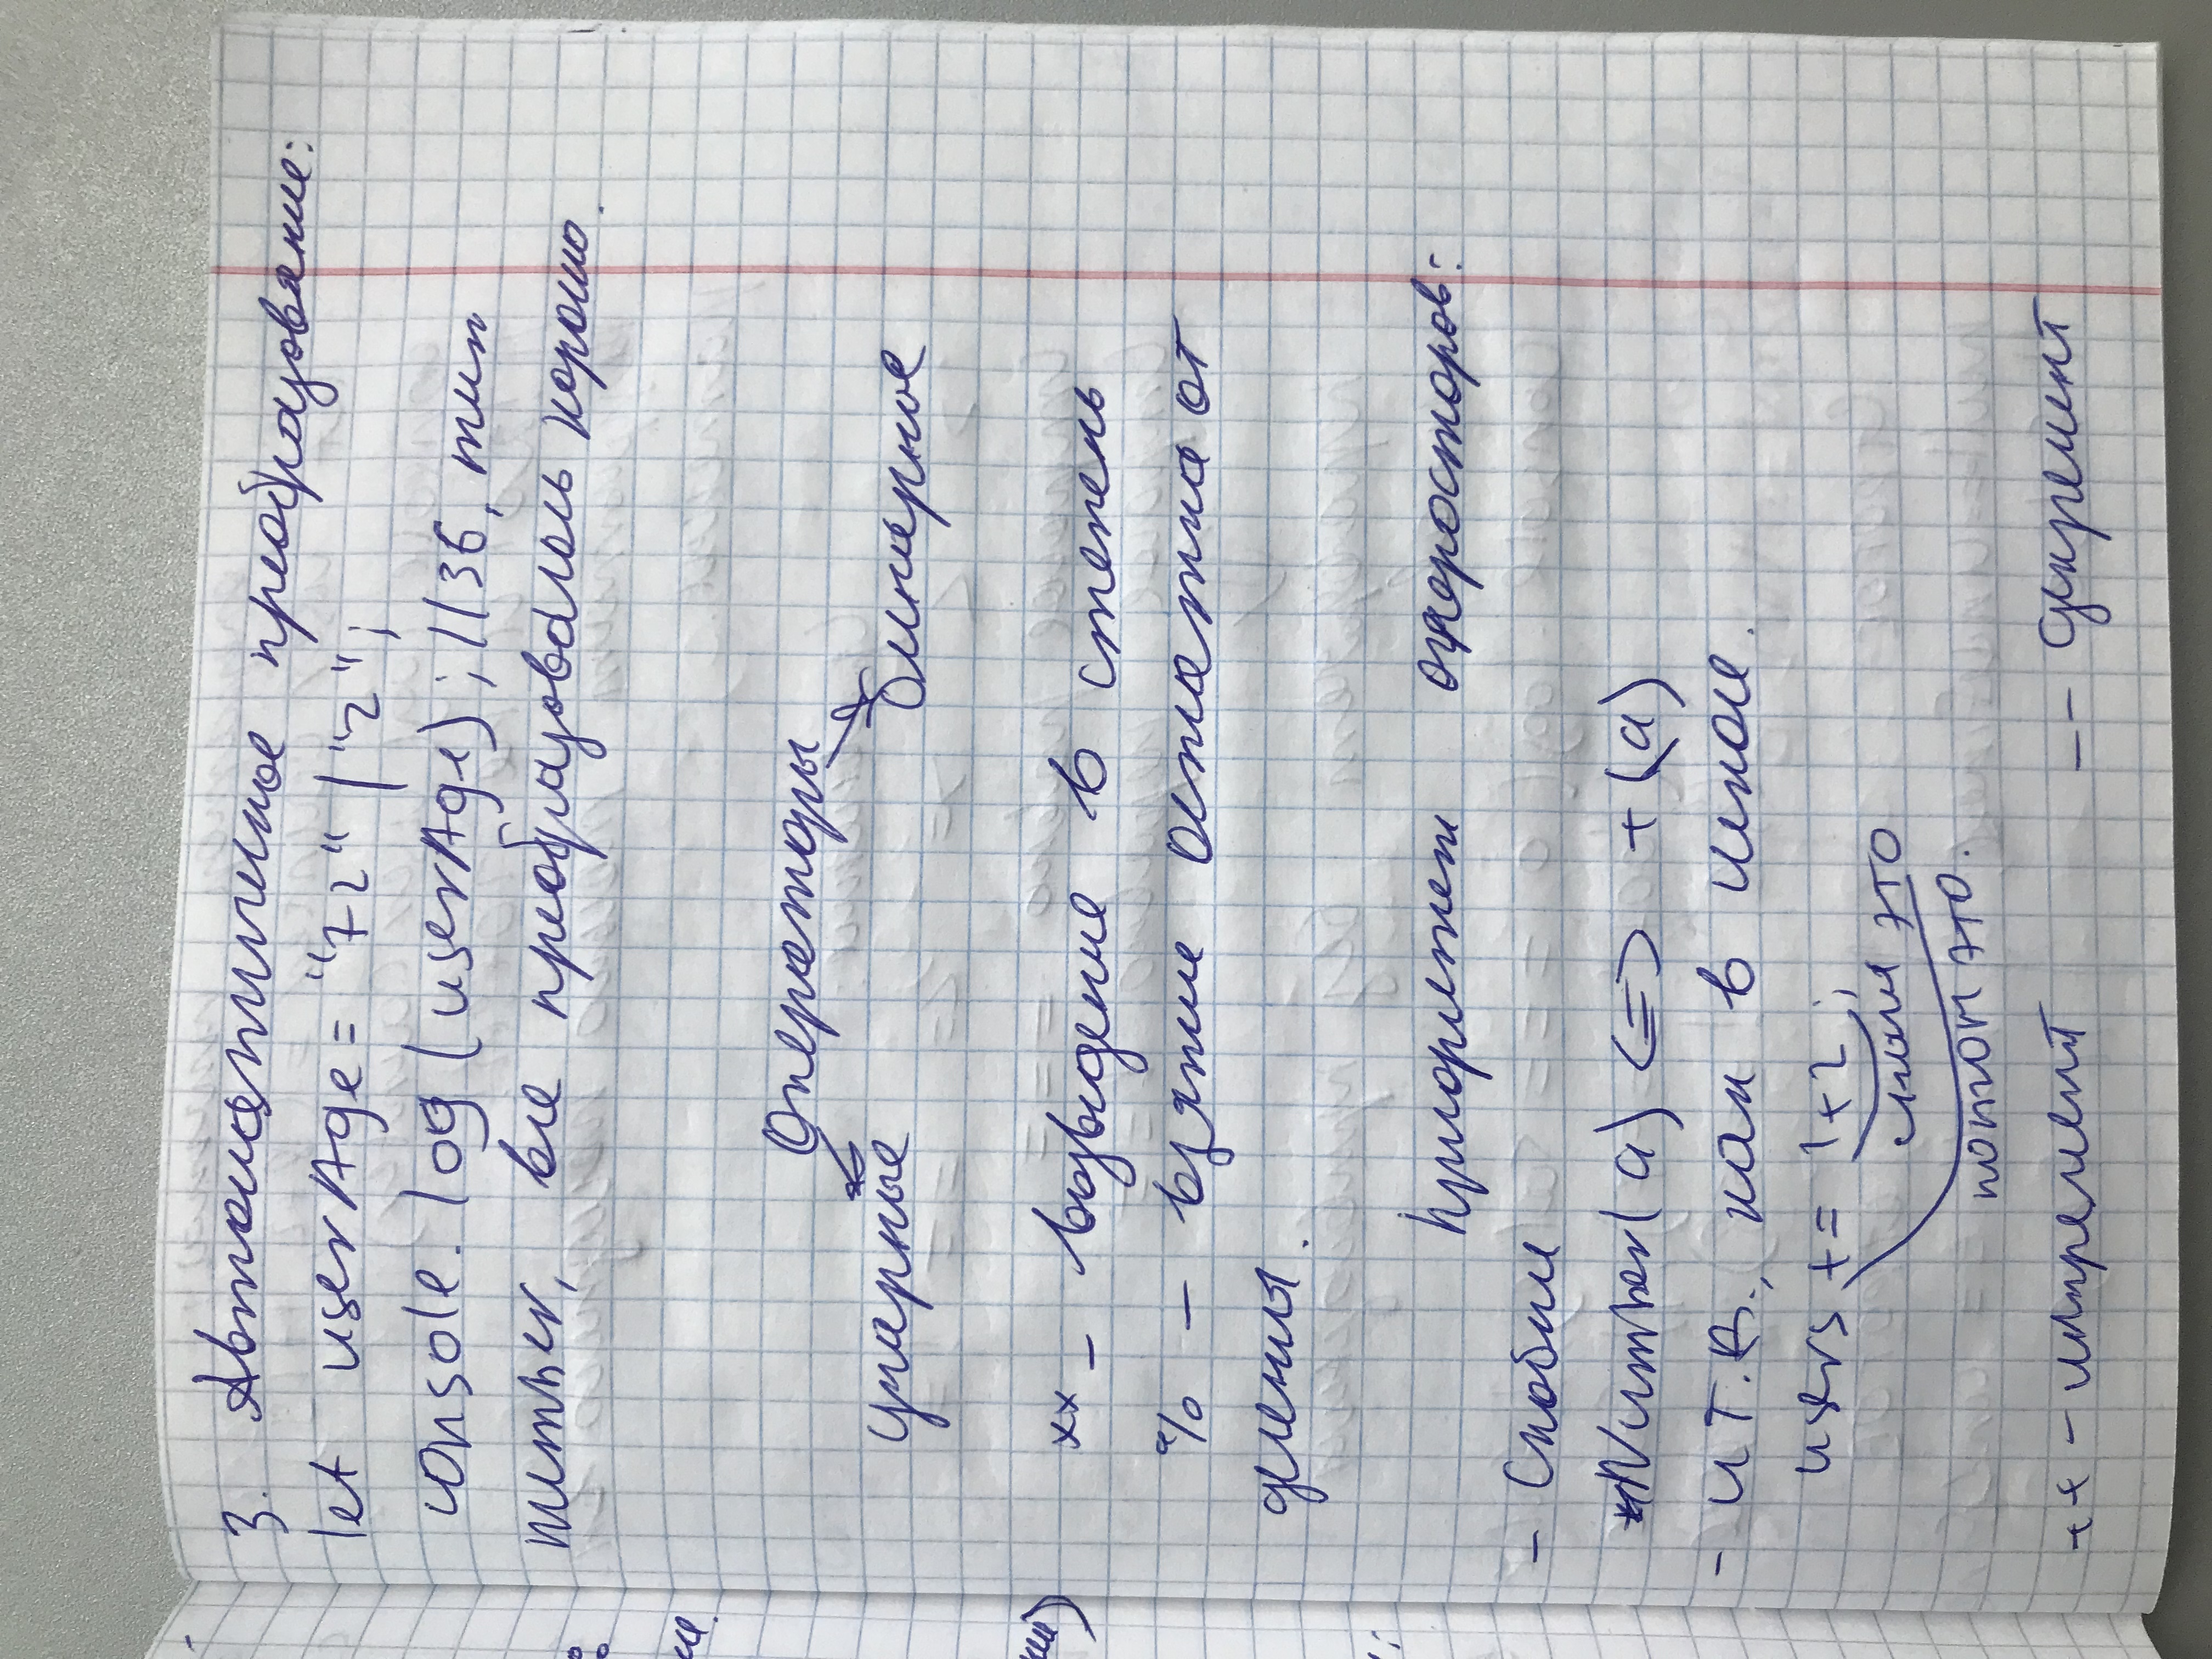 3. Автоматическое преобразование:
let userAge = "72" / "2";
console.log(userAge); //36, тип
number, все преобразовалось хорошо.
Операторы
унарные бинарное
** - возведение в степень
% - взятие остатка от
деления.
Приоритет операторов:
- Скобки
Number(a) <=> +(a)
- и т.д., как в школе.
users += 1+2;
сначала это
потом это.
++ - инкремент -- декремент